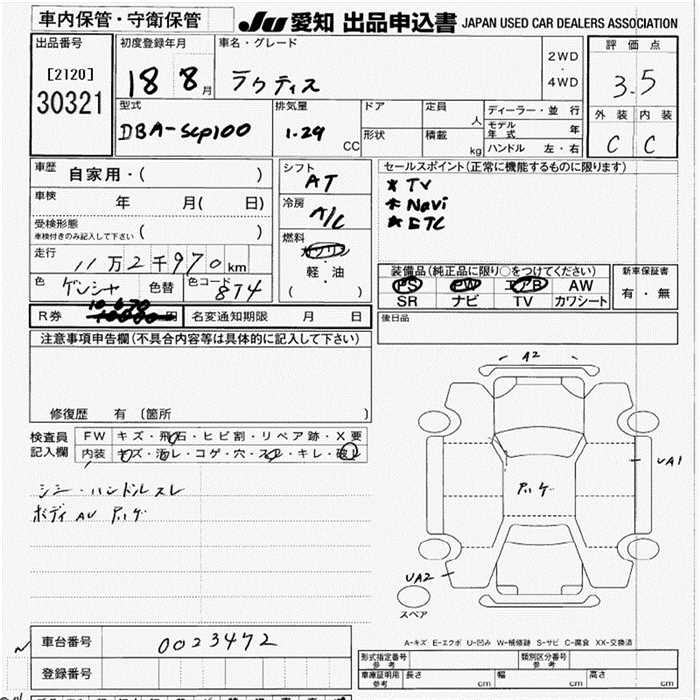 車内保管・守衛保管
JU 愛知 出品申込書 JAPAN USED CAR DEALERS ASSOCIATION
出品番号
[2120]
30321
初度登録年月
18 8月
車名・グレード
ラクティス
2WD
・
4WD
評価点
3.5
外装 内装
C C
型式
DBA-SCP100
排気量
1.29
CC
ドア
形状
定員
人
積載
kg
ディーラー・並 行
モデル年式 年
ハンドル 左・右
車歴 自家用・( )
車検 年 月( 日)
受検形態
車検付きのみ記入して下さい ( )
走行 11万2千970km
色 色替 色コード 874
シフト
AT
冷房
A/C
燃料
ガソリン
軽・油
( )
セールスポイント(正常に機能するものに限ります)
* TV
* Navi
* ETC
装備品(純正品に限り○をつけてください)
PS PW エアB AW
SR ナビ TV カワシート
新車保証書
有・無
R券 10,670
10000円
名変通知期限 月 日
後日品
注意事項申告欄(不具合内容等は具体的に記入して下さい)
修復歴 有 (箇所 )
検査員
記入欄
FW キズ・飛石・ヒビ割・リペア跡・X要
内装 キズ・汚レ・コゲ・穴・スレ・キレ・破レ
シミ・ハンドルスレ
A2
UA1
UA2
スペア
A-キズ E-エクボ U-凹み W-補修跡 S-サビ C-腐食 XX-交換済
車台番号 0023472
登録番号
形式指定番号
参考
類別区分番号
参考
車庫証明用
参考
長さ cm 幅 cm 高さ cm